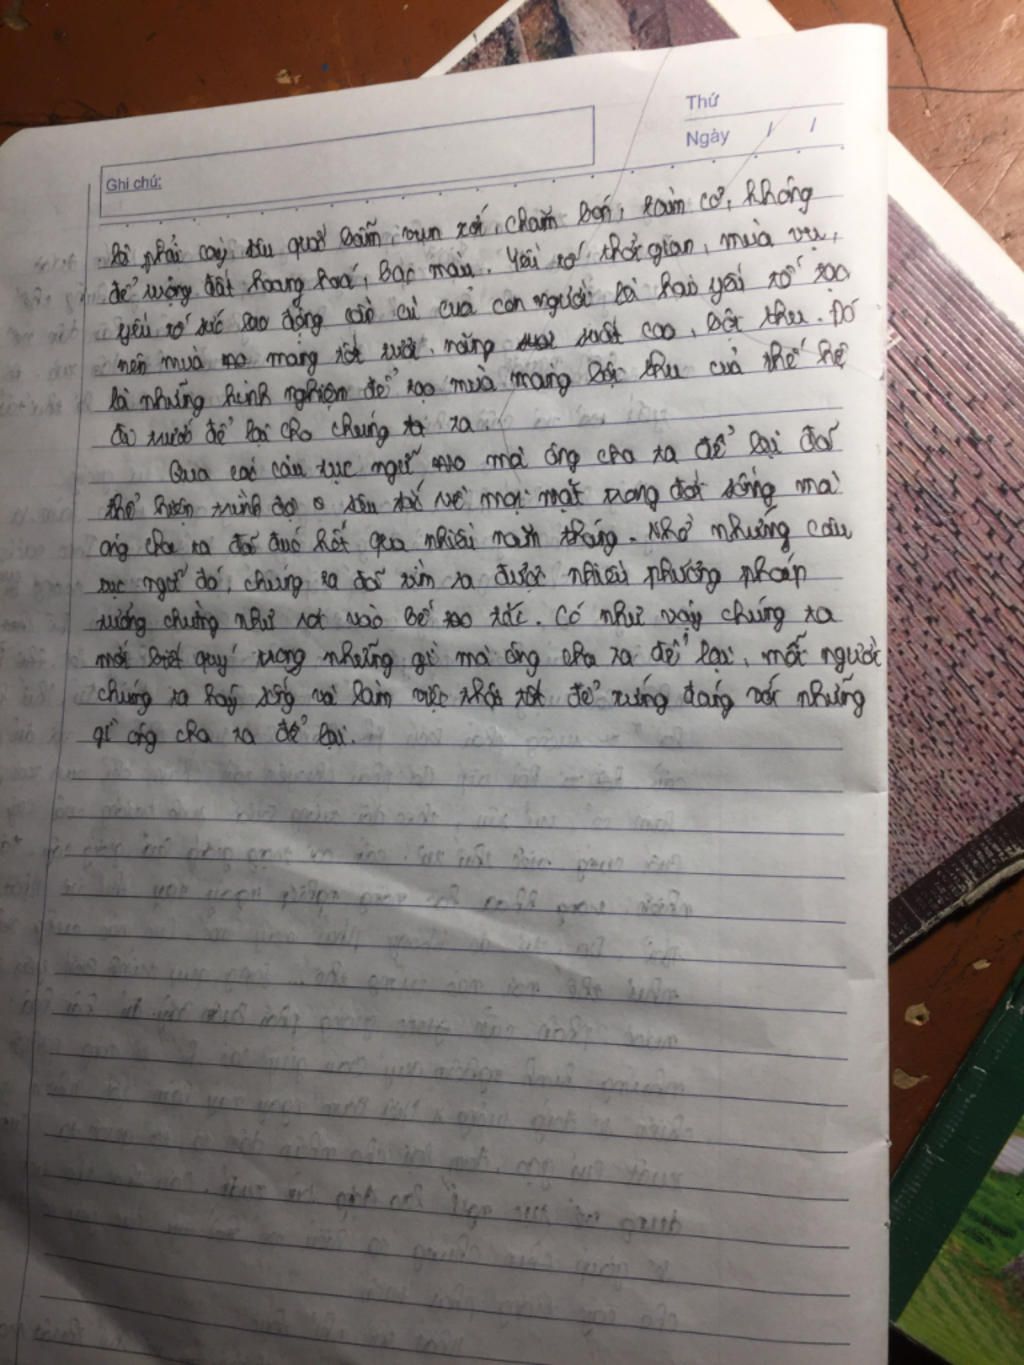 Thứ
Ngày / /
Ghi chú:
là phải cày sâu quốc bẫm, vun xới, chăm bón, làm cỏ, không
để ruộng đất hoang hoá, bạc màu. Yếu tố thời gian, mùa vụ,
yếu tố sức lao động cần cù của con người là hai yếu tố tạo
nên mùa màng tốt tươi, năng suất cao, bội thu. Đó
là những kinh nghiệm để tạo mùa màng bội thu của thế hệ
đi trước để lại cho chúng ta
Qua các câu tục ngữ mà ông cha ta để lại đã
thể hiện trình độ sâu sắc về mọi mặt trong đời sống mà
ông cha ta đã đúc kết qua nhiều năm tháng. Nhờ những câu
tục ngữ đó, chúng ta đã tìm ra được nhiều phương pháp
tưởng chừng như rơi vào bế tắc. Có như vậy chúng ta
mới biết quý trọng những gì mà ông cha ta để lại, mỗi người
chúng ta hãy sống và làm việc thật tốt để xứng đáng với những
gì ông cha ta để lại.